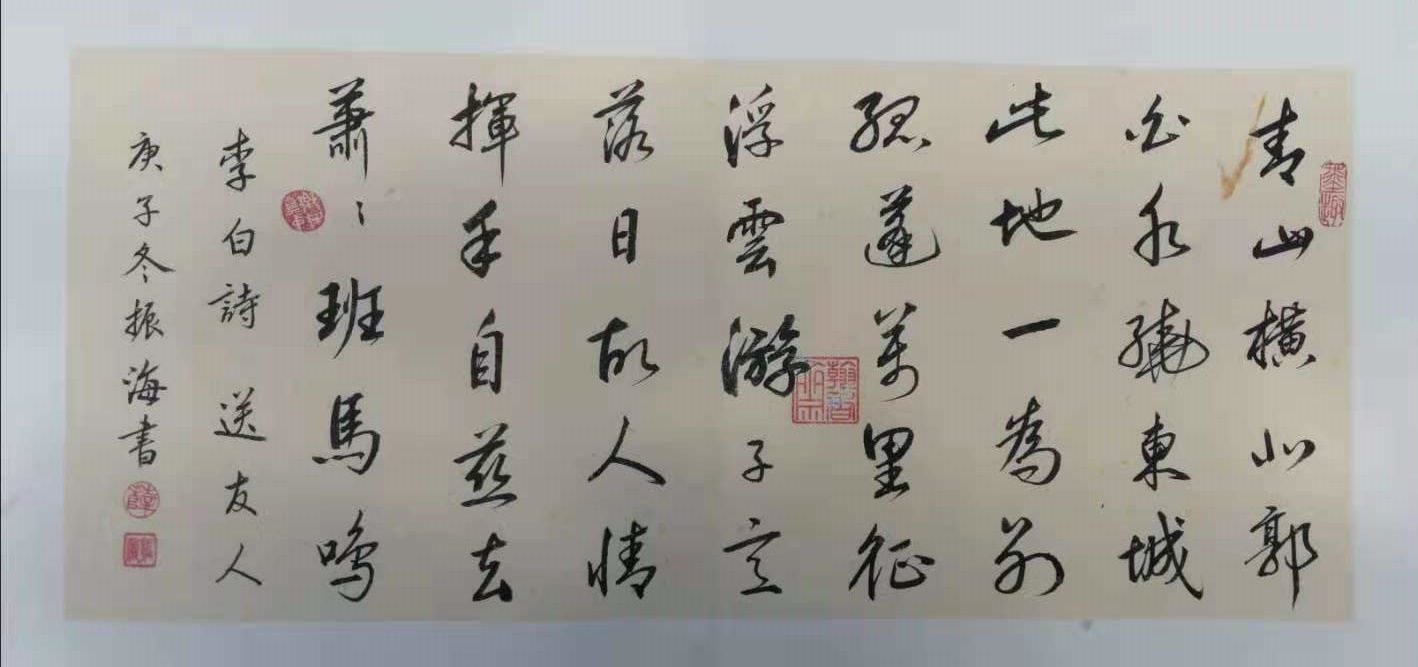 青山橫北郭
白水繞東城
此地一為別
孤蓬萬里征
浮雲游子意
落日故人情
揮手自茲去
蕭〻班馬鳴
李白詩 送友人
庚子冬振海書
薛